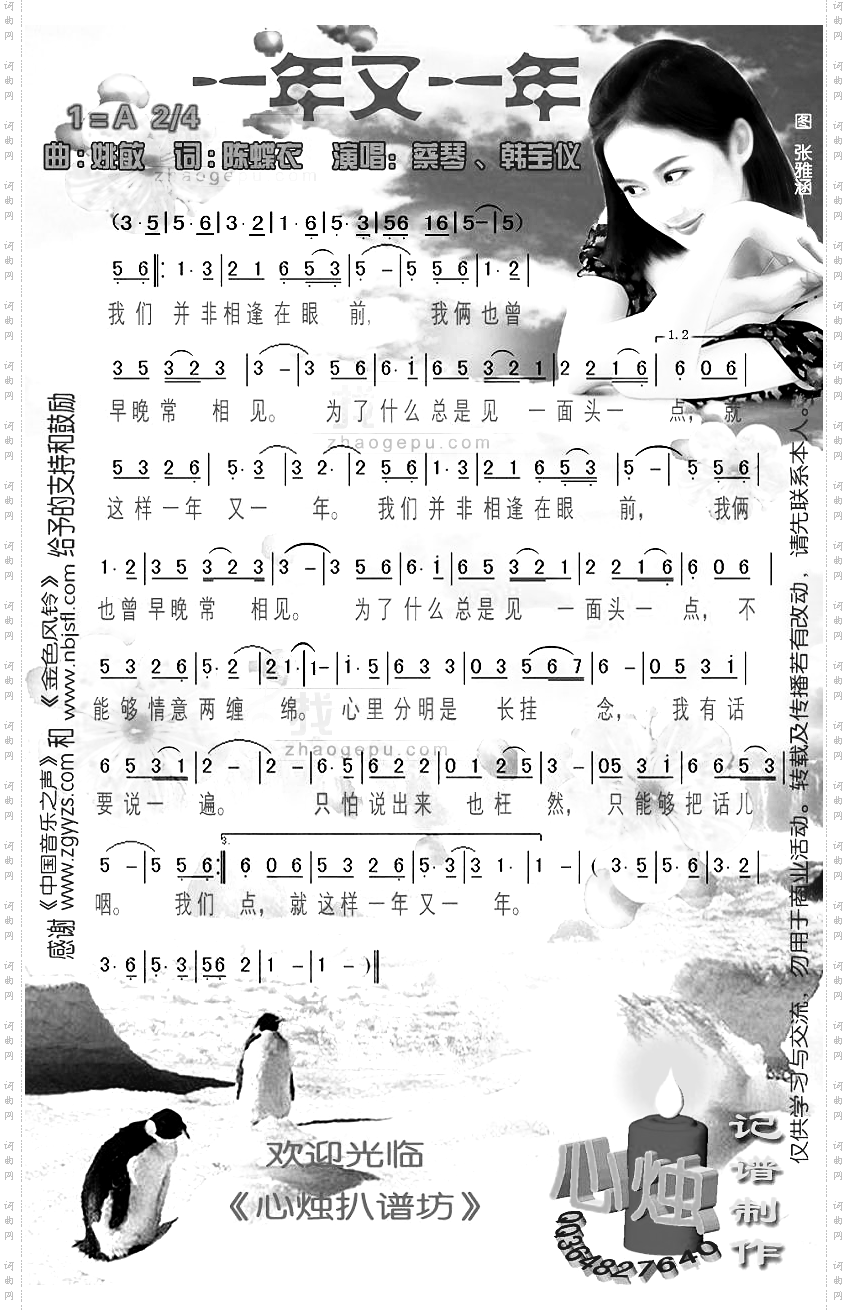 一年又一年
1=A 2/4
曲:姚敏 词:陈蝶衣 演唱:蔡琴、韩宝仪
图 张雅涵
zhaogepu.com
(3·5|5·6|3·2|1·6|5·3|56 16|5-|5)
5 6‖:1·3|2 1 6 5 3|5 -|5 5 6|1·2|
我们 并非相逢在眼 前, 我俩也曾
1.2
3 5 3 2 3|3 -|3 5 6|6·i|6 5 3 2 1|2 2 1 6|6 0 6|
早晚常 相见。 为了什么总是见 一面头一 点, 就
zhaogepu.com
5 3 2 6|5·3|3 2·|2 5 6|1·3|2 1 6 5 3|5 -|5 5 6|
这样一年 又一 年。 我们并非相逢在眼 前, 我俩
1·2|3 5 3 2 3|3 -|3 5 6|6·i|6 5 3 2 1|2 2 1 6|6 0 6|
也曾早晚常 相见。 为了什么总是见 一面头一 点, 不
5 3 2 6|5·2|2 1·|1-|i·5|6 3 3|0 3 5 6 7|6 -|0 5 3 i|
能够情意两缠 绵。 心里分明是 长挂 念, 我有话
找
zhaogepu.com
6 5 3 1|2 -|2 -|6·5|6 2 2|0 1 2 5|3 -|05 3 i|6 6 5 3|
要说一 遍。 只怕说出来 也枉 然, 只能够把话儿
3.
5 -|5 5 6:‖6 0 6|5 3 2 6|5·3|3 1·|1 -|(3·5|5·6|3·2|
咽。 我们 点, 就这样一年又一 年。
3·6|5·3|56 2|1 -|1 -)‖
感谢《中国音乐之声》www.zgyyzs.com 和《金色风铃》www.nbjsfl.com 给予的支持和鼓励
仅供学习与交流,勿用于商业活动。转载及传播若有改动,请先联系本人。
欢迎光临
《心烛扒谱坊》
心烛
QQ364827640
记谱制作
词曲网